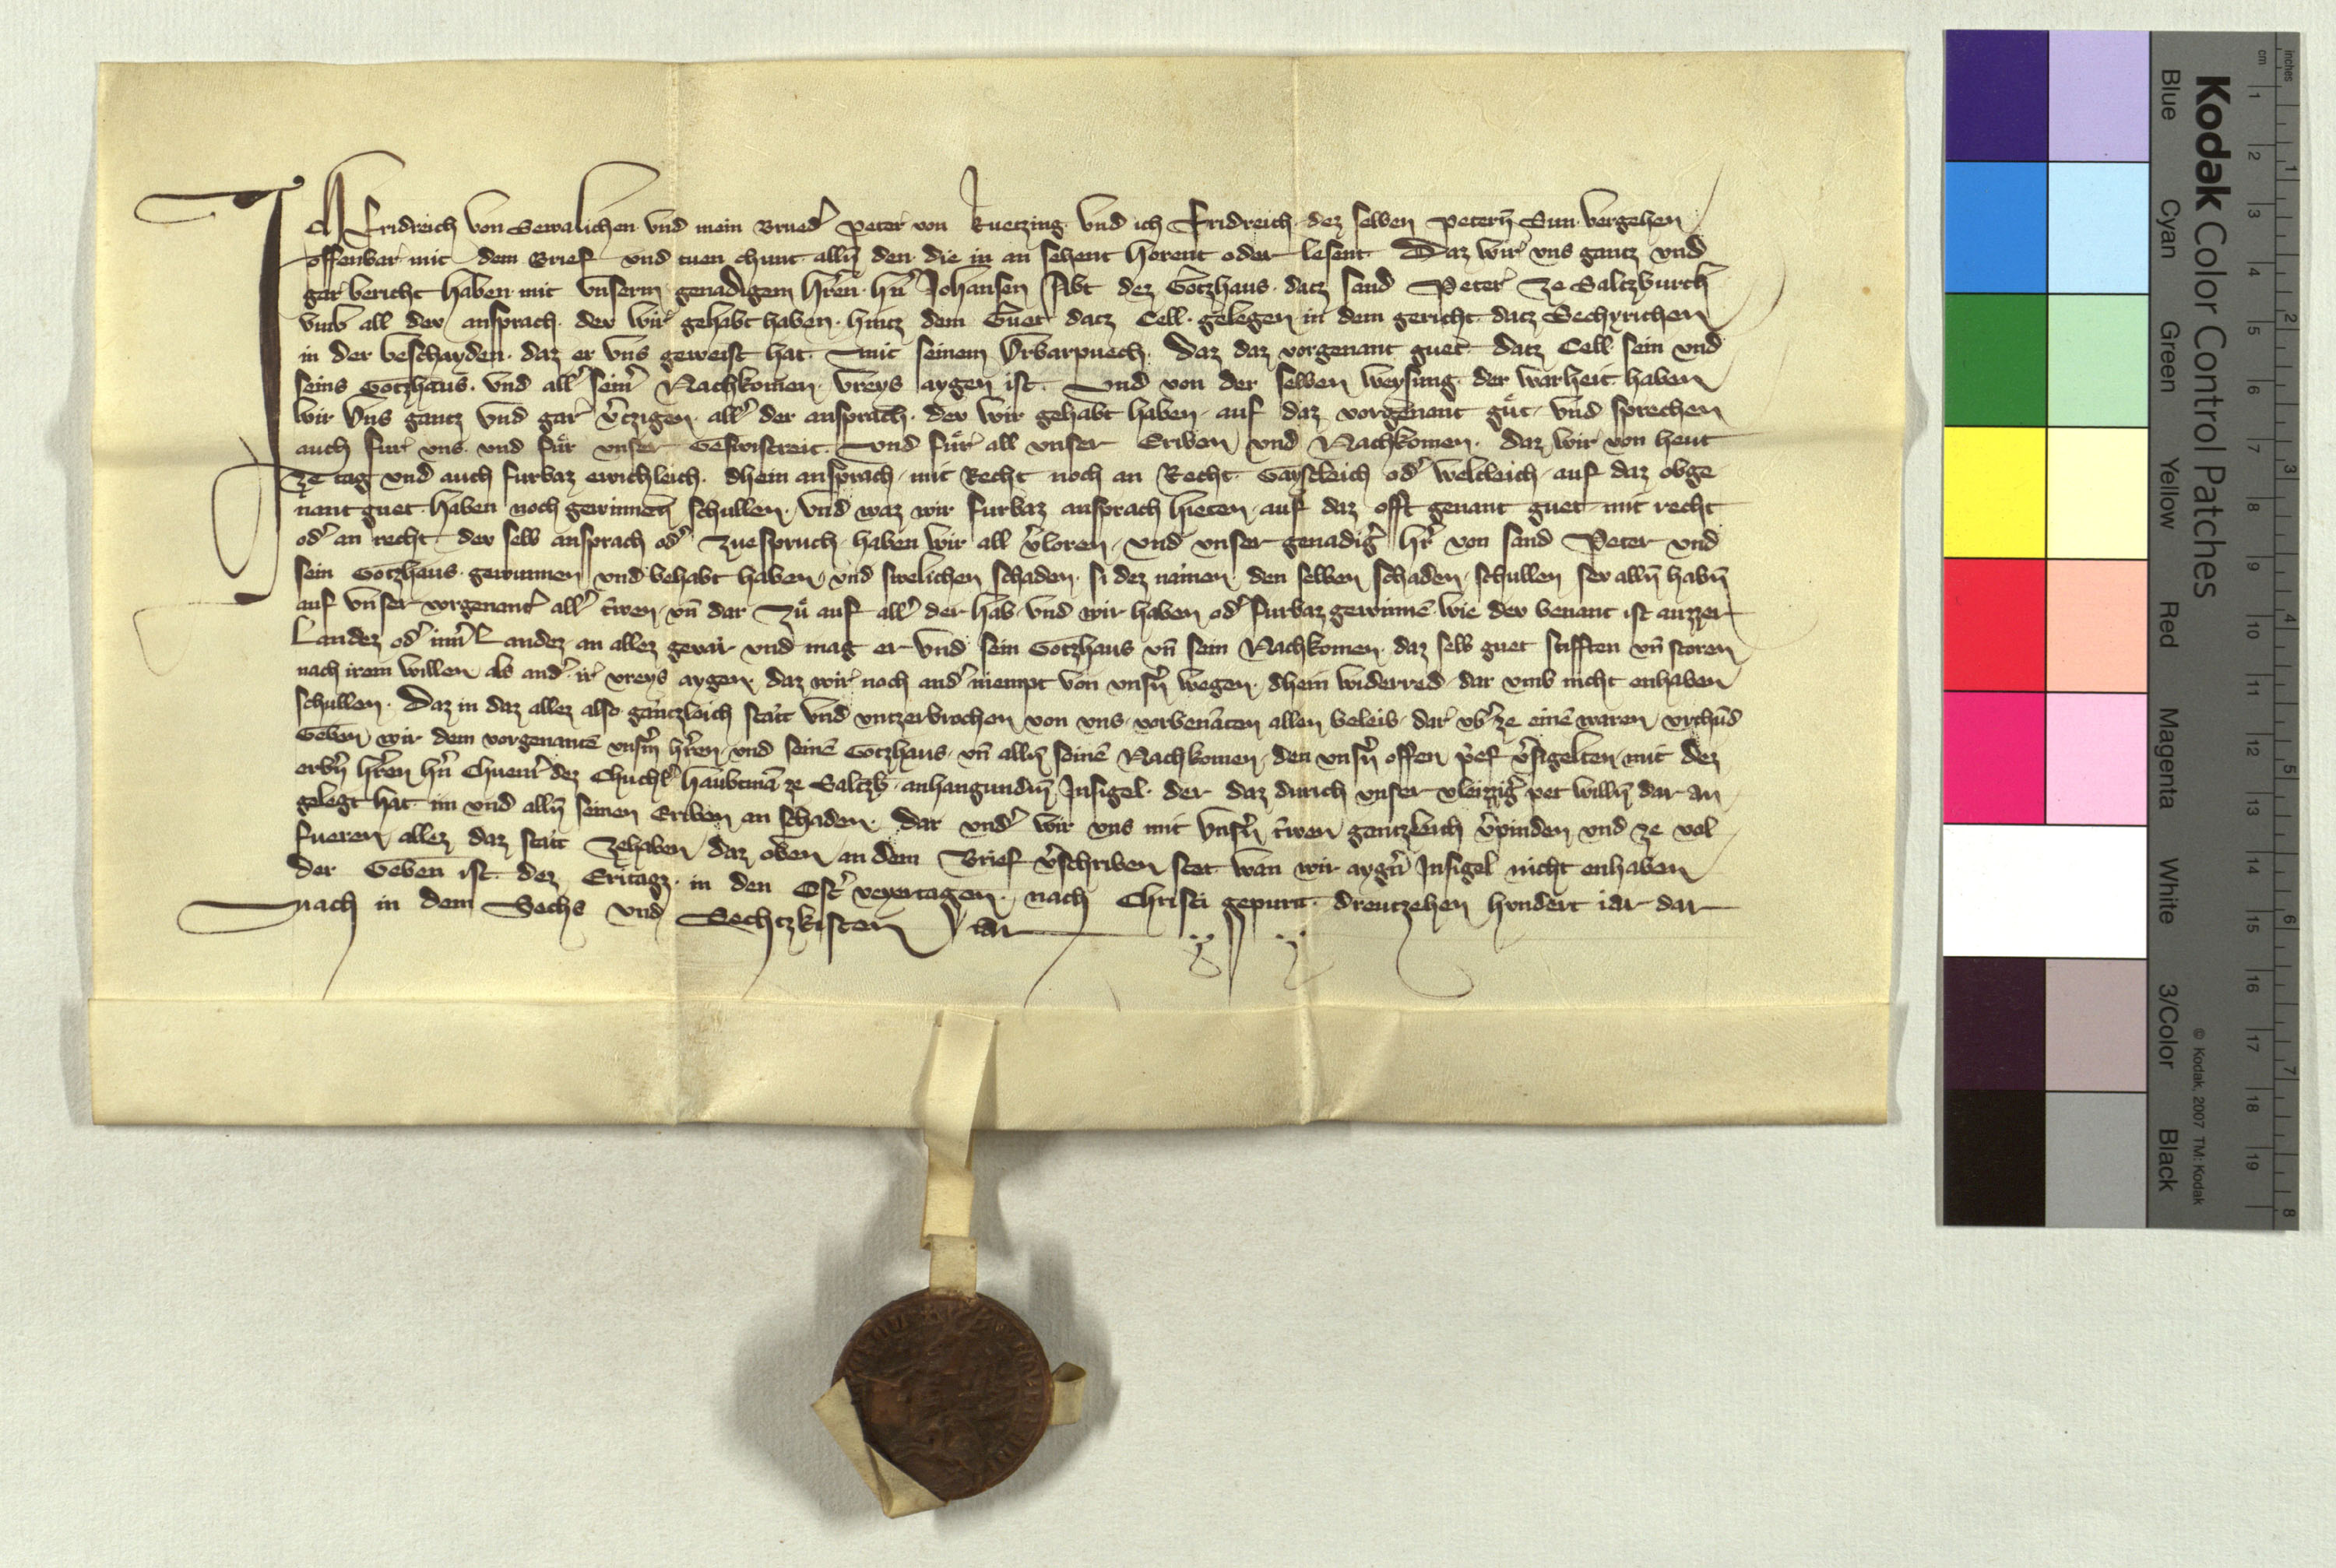 Ich Fridreich von Sewalichen und mein Brued' Peter von kuetzing und ich Fridreich dez selben Petern Sun vergehen
offenbar mit dem Brief und tuen chunt alln den die in an sehent horent oder lesent Daz wir uns gantz und
gar bericht haben mit unserm genadigem hren hn Johansen Abt dez Gotzhaus datz sand Peter ze Saltzburch
umb all der ansprach der wir gehabt haben hintz dem Guet datz Cell gelegen in dem gericht datz
in der beschayden daz er uns geweist hat mit seinem Urbarpuech Daz daz vorgenant guet datz Cell sein und
seins Gotzhaus und all' sein' Nachkomen vreys aygen ist und von der selben weysung der warheit haben
wir uns gantz und gar v'tzigen all' der ansprach der wir gehabt haben auf daz vorgenant gůt und sprechen
auch fur uns und fůr unser Geswistreit und fůr all unser Eriben und Nachkomen daz wir von heut
ze tag und auch furbaz ewichleich dhein ansprach mit Recht noch an Recht Gaystleich od' weltleich auf daz obge
nant guet haben noch gewinnen schullen und waz wir furbaz ansprach hieten auf daz offt genant guet mit recht
od' an recht der selb ansprach od' zuespruch haben wir all v'loren und unser genadig' hr' von sand Peter und
sein Gotzhaus gewunnen und behabt haben und swelichen schaden si dez namen den selben schaden schullen sev alln habn
auf unser vorgenant' all' trwen un dar Zů auf all' der hab und wir haben od' furbaz gewinne wie der benant ist auzzer
Landez od' inn' Landez an allez gevar und mag er und sein Gotzhaus un sein Nachkomen daz selb guet stifften un storen
nach irem willen als and' ir vreys aygen daz wir noch and' niempt von unsern wegen dhein widerred dar umb nicht enhaben
schullen Daz in daz allez also gantzleich stat und untzerbrochen von uns vorbenanten allen beleib dar ub' ze eine waren urchund
Geben wir dem vorgenante unserm hren und seine Gotzhaus un alln seine Nachkomen den unsern offen prief v'sigelten mit dez
erbn hren hn Chunr' dez Chuchl' haubtma ze Saltzb anhangundm Insigel der daz durich unser vleizzig' pet willn dar an
gelegt hat im und alln seinen Eriben an schaden Dar und' wir uns mit unsern trwen gentzleich v'pinden und ze vol
fueren allez daz stat zehaben daz oben an dem Brief v'schriben stet wan wir aygen Insigel nicht enhaben
der Geben ist dez Eritagz in den Ost' veyertagen nach Christi gepurt dreutzehen hundert iar dar
nach in dem Sechs und Sechtzkisten iar
Kodak Color Control Patches
Blue Cyan Green Yellow Red Magenta White 3/Color Black
© Kodak, 2007 TM: Kodak
inches 1 2 3 4 5 6 7 8
cm 1 2 3 4 5 6 7 8 9 10 11 12 13 14 15 16 17 18 19